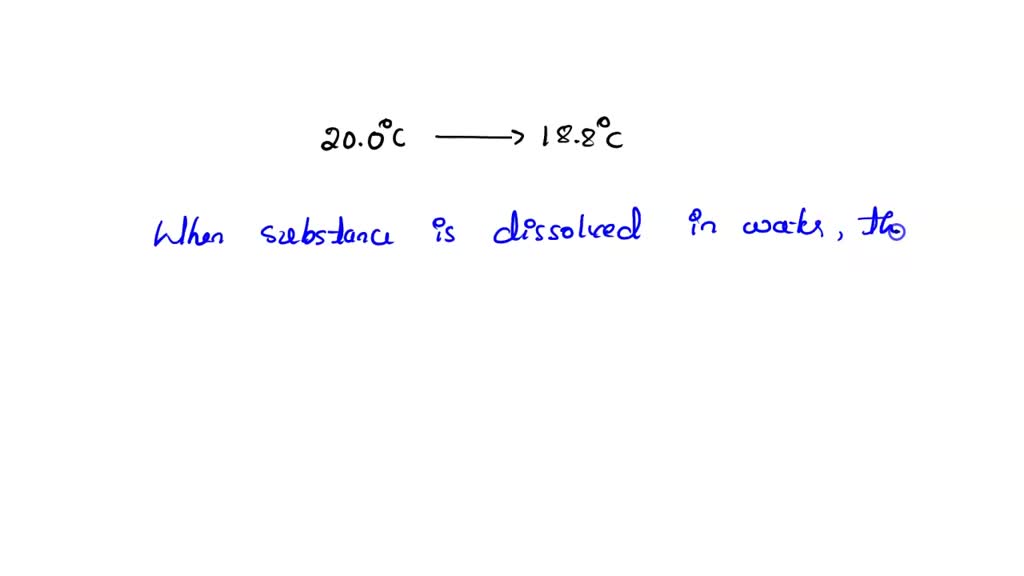 20.0°C ⟶ 18.8°C
When substance is dissolved in water, the